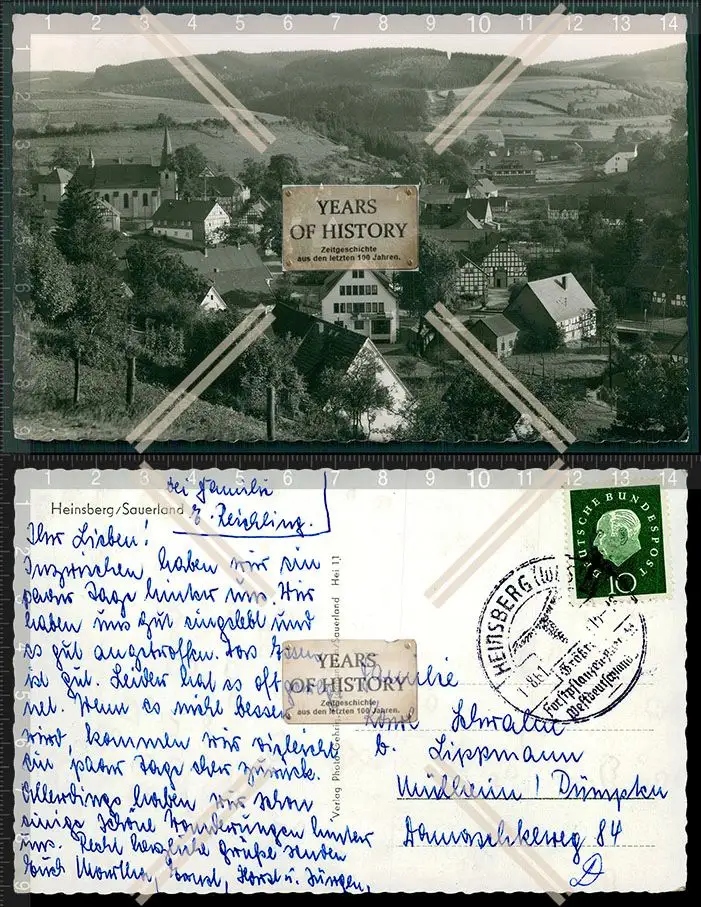 YEARS
OF HISTORY
Zeitgeschichte
aus den letzten 100 Jahren.
Heinsberg/Sauerland
bei Familie
E. Reichling.
Ihr Lieben!
Inzwischen haben wir ein
paar Tage hinter uns. Wir
haben uns gut eingelebt und
es gut angetroffen. Das Essen
ist gut. Leider hat es oft gereg
net. Wenn es nicht besser
wird, kommen wir vielleicht
ein paar Tage eher zurück.
Allerdings haben wir schon
einige schöne Wanderungen hinter
uns. Recht herzliche Grüße senden
Euch Martha, Ernst, Horst u. Jürgen.
Sauerland Hei 11
Verlag Photo-Gehrin
YEARS
OF HISTORY
Zeitgeschichte
aus den letzten 100 Jahren.
DEUTSCHE BUNDESPOST
10
HEINSBERG
1.8.61
Westdeutschlands
Familie
Schwalm
b. Lippmann
Mülheim / Dümpten
Damaschkeweg 84
D